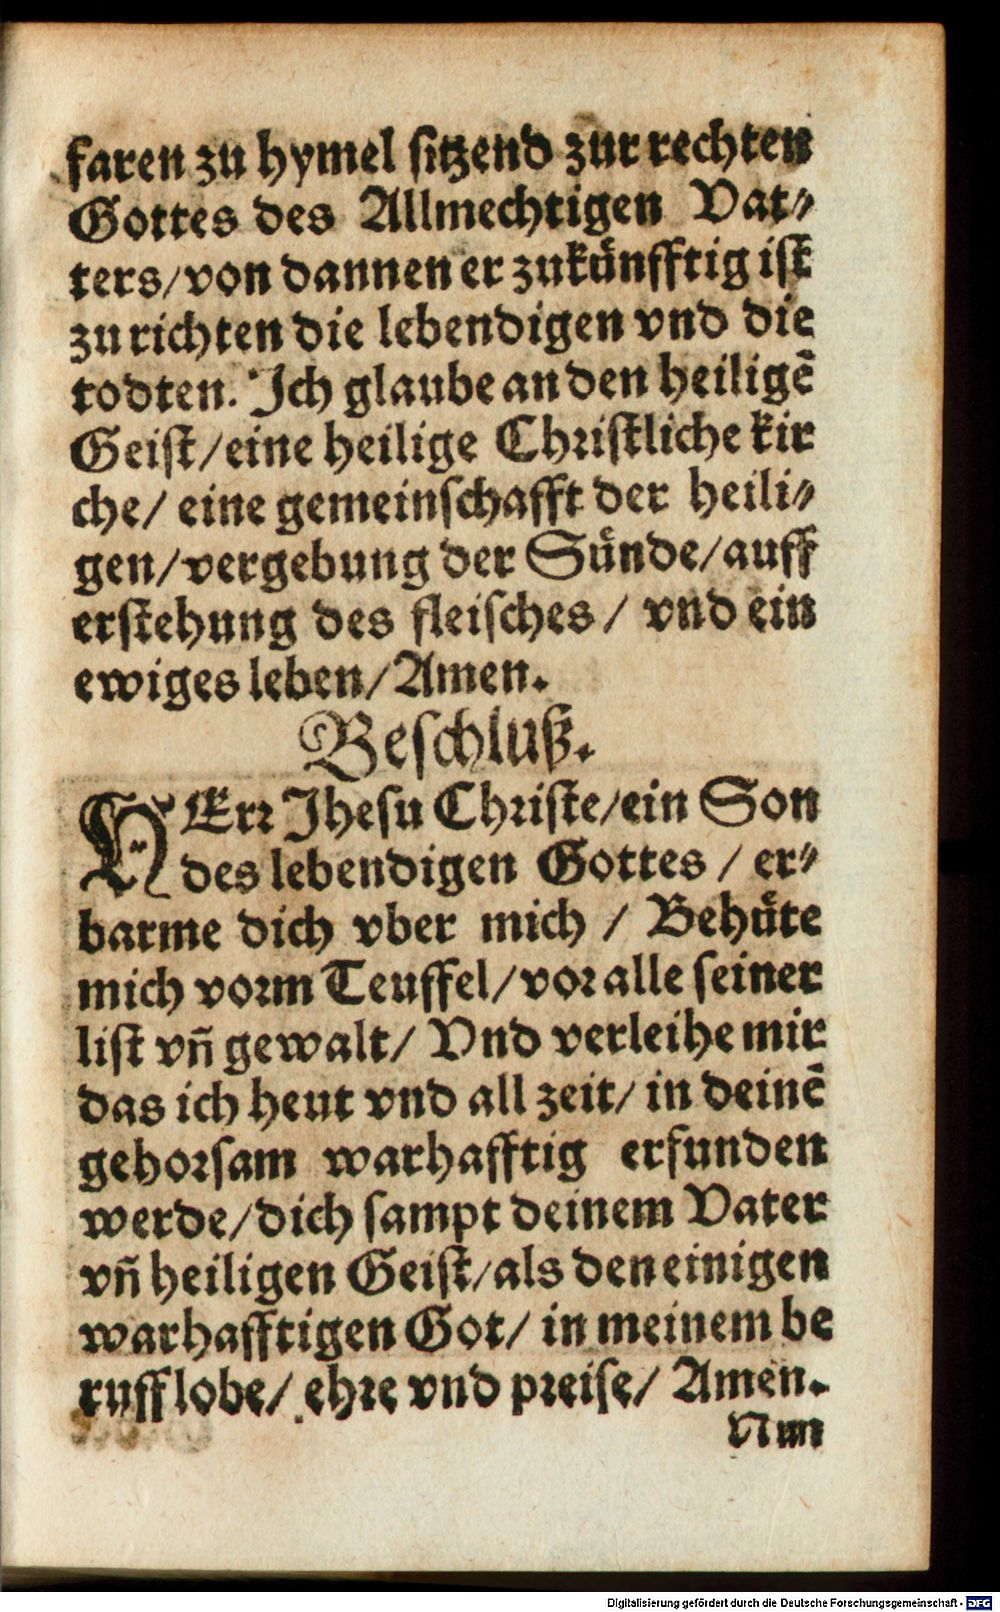 faren zu hymel sitzend zur rechten
Gottes des Allmechtigen Vat⸗
ters/von dannen er zukünfftig ist
zu richten die lebendigen vnd die
todten. Ich glaube an den heiligē
Geist/eine heilige Christliche kir
che/ eine gemeinschafft der heili⸗
gen/vergebung der Sünde/auff
erstehung des fleisches/ vnd ein
ewiges leben/Amen.
Beschluß.
HErr Jhesu Christe/ein Son
des lebendigen Gottes / er⸗
barme dich vber mich / Behüte
mich vorm Teuffel/vor alle seiner
list vñ gewalt/ Vnd verleihe mir
das ich heut vnd all zeit/ in deinē
gehorsam warhafftig erfunden
werde/dich sampt deinem Vater
vñ heiligen Geist/als den einigen
warhafftigen Got/ in meinem be
ruff lobe/ ehre vnd preise/ Amen.
Nun
Digitalisierung gefördert durch die Deutsche Forschungsgemeinschaft - DFG